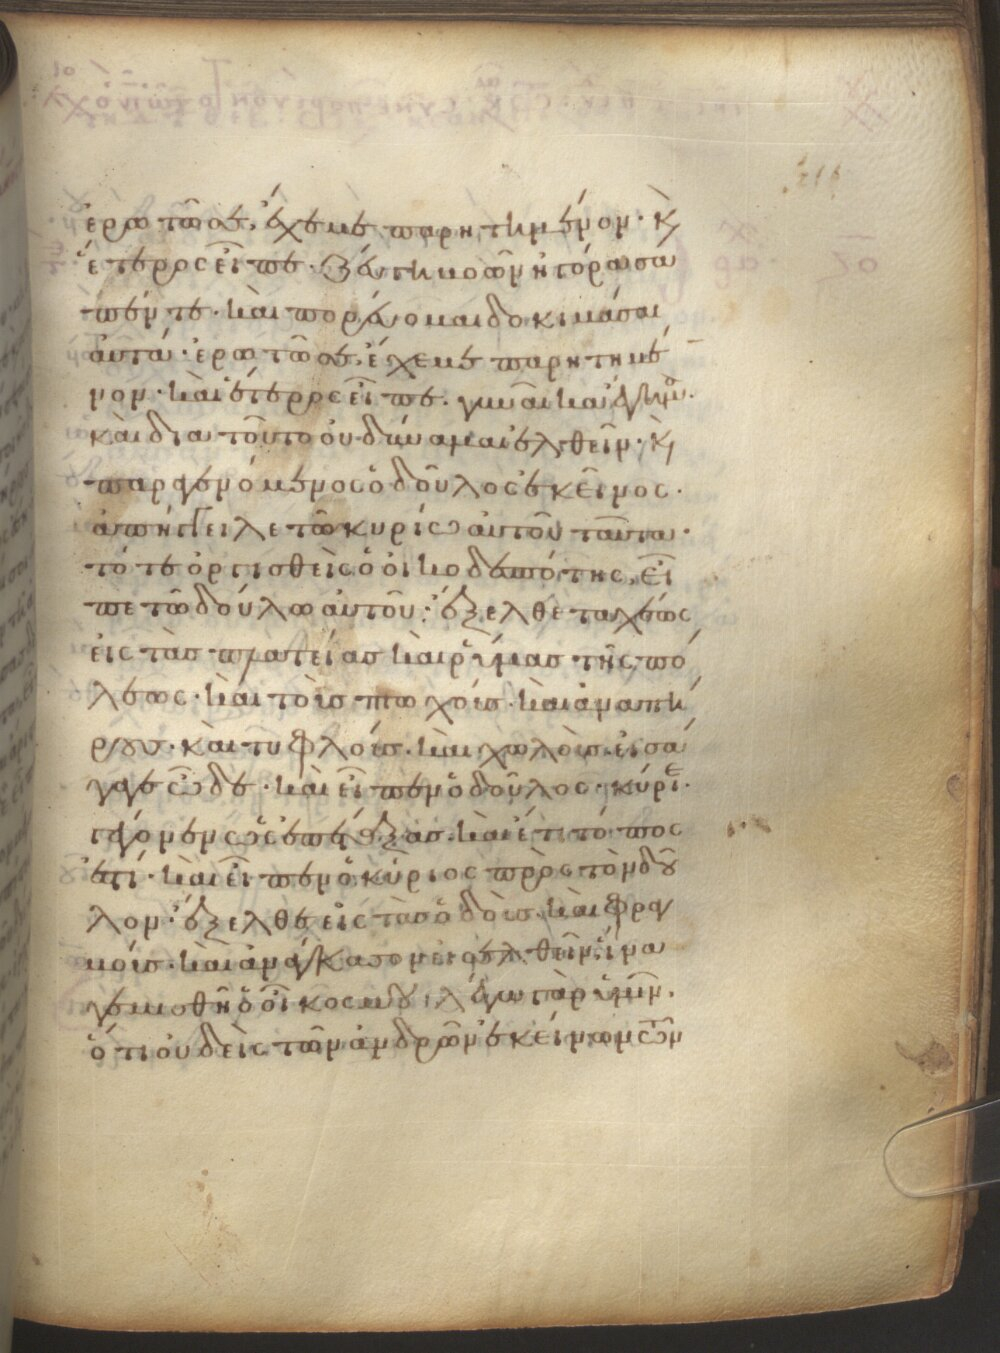 ἐρωτῶ σε, ἔχε με παρητημένον· κ(αὶ)
ἕτερος εἶπε· ζεύγη βοῶν ἠγόρασα
πέντε· καὶ πορεύομαι δοκιμάσαι
αὐτά· ἐρωτῶ σε, ἔχε με παρητημέ
νον· καὶ ἕτερος εἶπε· γυναῖκα ἔγημα·
καὶ διατοῦτο οὐ δύναμαι ἐλθεῖν· κ(αὶ)
παραγενόμενος ὁ δοῦλος ἐκεῖνος·
ἀπήγγειλε τῶ κυρίω αὐτοῦ ταῦτα·
τότε ὀργισθεὶς ὁ οἰκοδεσπότης, εἶ
πε τῶ δούλω αὐτοῦ· ἔξελθε ταχέως
εἰς τὰς πλατείας καὶ ῥύμας τῆς πό
λεως· καὶ τοὺς πτωχοὺς· καὶ ἀναπή
ρους· καὶ τυφλοὺς· καὶ χωλοὺς· εἰσά
γαγε ὧδε· καὶ εἶπεν ὁ δοῦλος· κύριε·
γέγονεν ὡς ἐπέταξας· καὶ ἔτι τόπος
ἐστί· καὶ εἶπεν ὁ κύριος πρὸς τὸν δοῦ
λον· ἔξελθε εἰς τὰς ὁδοὺς· καὶ φραγ
μοὺς· καὶ ἀνάγκασον εἰσελθεῖν· ἵνα
γεμισθῆ ὁ οἶκος μου· λέγω γὰρ ὑμῖν·
ὅτι οὐδεὶς τῶν ἀνδρῶν ἐκείνων τῶν